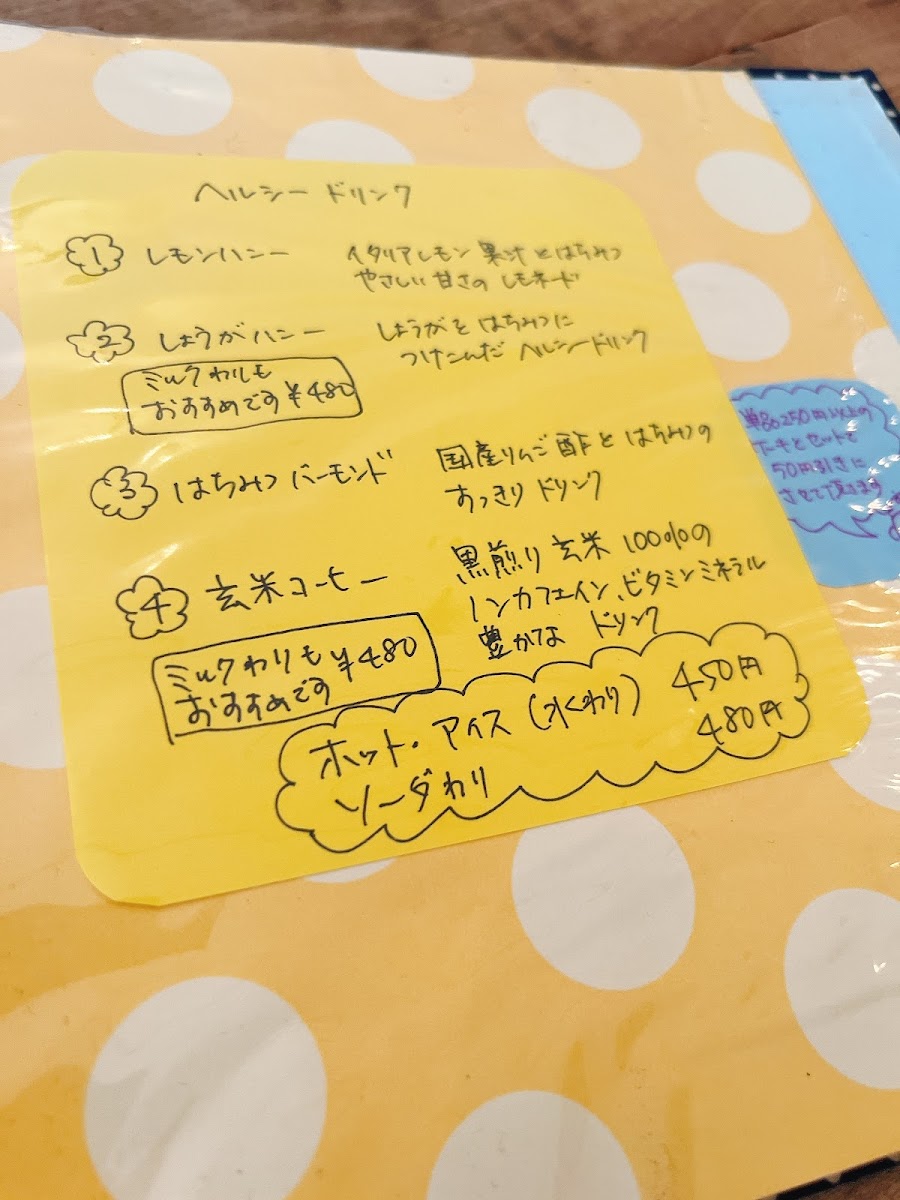 ヘルシードリンク
① レモンハニー
イタリアレモン果汁とはちみつ
やさしい甘さのレモネード
② しょうがハニー
しょうがをはちみつに
つけこんだ ヘルシードリンク
ミルクわりも
おすすめです ¥480
③ はちみつバーモンド
国産りんご酢とはちみつの
すっきりドリンク
④ 玄米コーヒー
黒煎り玄米100%の
ノンカフェイン、ビタミンミネラル
豊かな ドリンク
ミルクわりも ¥480
おすすめです
ホット・アイス(水わり) 450円
ソーダわり 480円
単品250円以上の
ケーキとセットで
50円引きに
させて頂きます